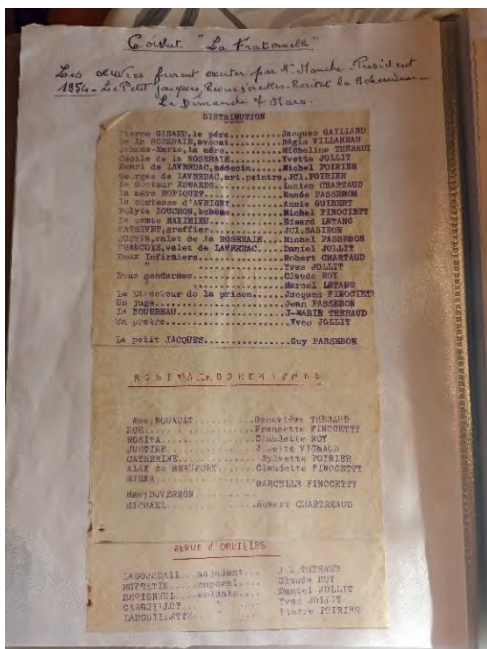 "La Fraternelle"
Les œuvres furent par Mr Président
1954 - Le Petit Jacques Revue d'oreilles - Rosita la Bohémienne -
Le Dimanche 7 Mars.
DISTRIBUTION
Pierre GIRARD, le père...........Jacques GAILLARD
De la ROSERAIE, avocat..........Régis VILLANEAU
Jeanne-Marie, la mère...........Micheline THERAUD
Cécile de la ROSERAIE..........Yvette JOLLIT
Henri de LAVERDAC, médecin....Michel POIRIER
Georges de LAVERDAC, art.peintre, JCl.POIRIER
Le docteur EDWARDS............Lucien CHARTAUD
La mère..........Renée PASSEBON
La comtesse d'AVRIGNY..........Annie GUIBERT
Polyte BOUCHON, bohème..........Michel FINOCIETY
Le comte MAXIMIEU............Edward LETANG
MATHIVET, greffier............JCl.SABIRON
valet de la ROSERAIE....Michel PASSEBON
FRANCOIS, valet de LAVERDAC.....Daniel JOLLIT
Deux Infirmiers............Robert CHARTAUD
" ............Yves JOLLIT
Deux gendarmes............Claude ROY
" ............Marcel LETANG
Le Directeur de la prison......Jacques FINOCIETY
Un juge............Jean PASSEBON
Le BOURREAU............J-MARIE THERAUD
Un prêtre............Yves JOLLIT
Le petit JACQUES............Guy PASSEBON
ROSITA LA BOHEMIENNE
Mme; ROUAULT..........Geneviève THERAUD
..........Fransette FINOCETTY
ROSITA..........Claudette ROY
JUSTINE..........VIGNAUD
CATHERINE..........Sylvette POIRIER
ALIX de BEAUFORT......Claudette FINOCETTY
MARCELLE FINOCETTY
Mme; DUVERNON
MICHAEL..........Robert CHARTREAUD
REVUE d'OREILLES
adjudant.... THERAUD
caporal.... Claude ROY
soldats.... Daniel JOLLIT
" Yves JOLLIT
" Pierre POIRIER